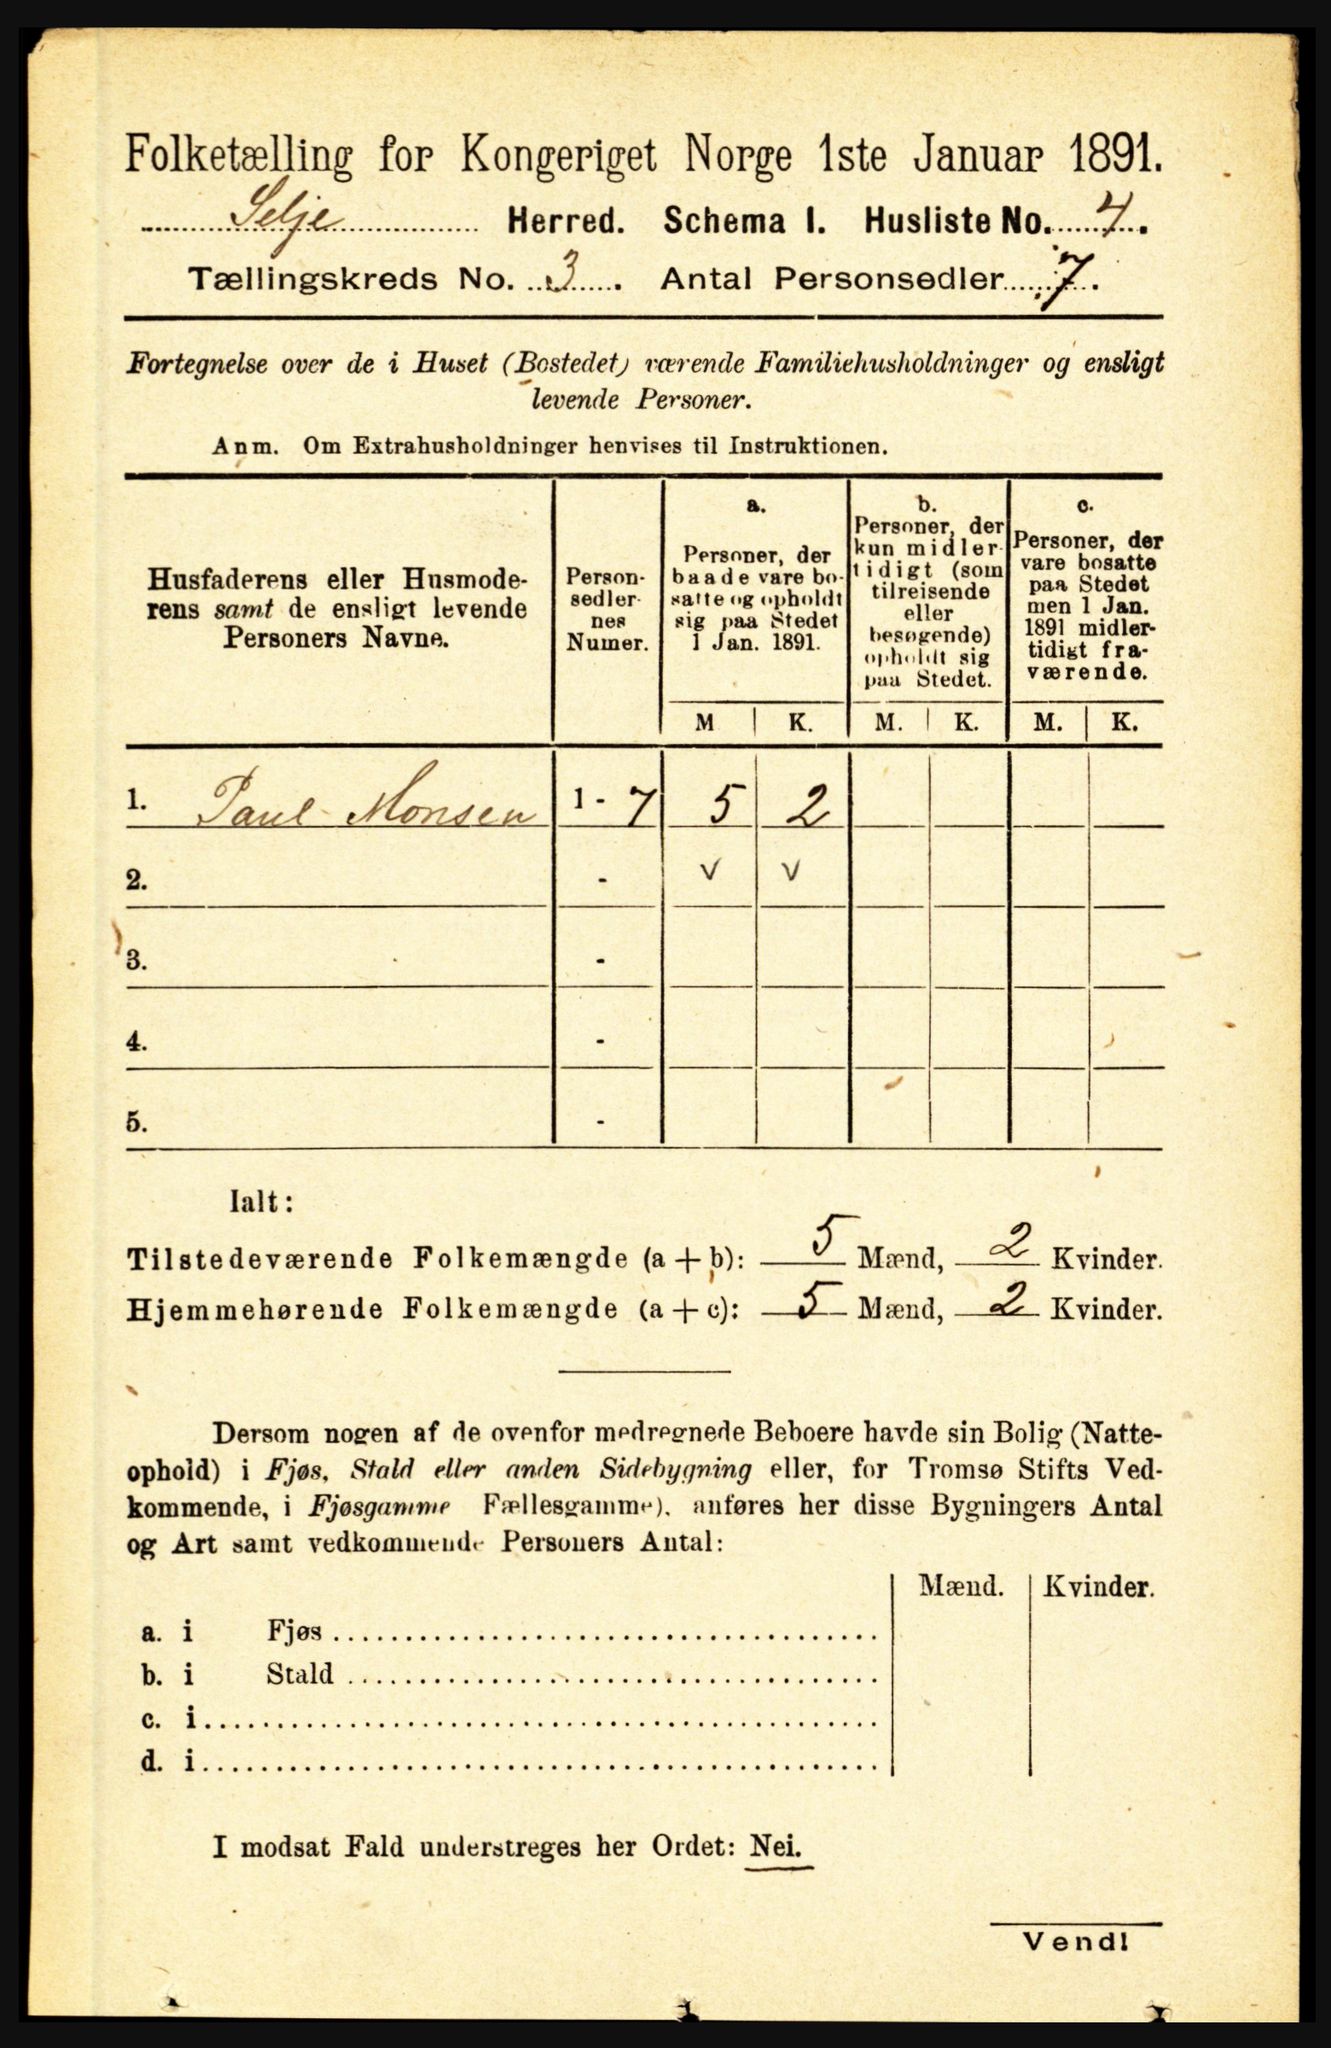 Folketælling for Kongeriget Norge 1ste Januar 1891.
Selje Herred. Schema I. Husliste No. 4.
Tællingskreds No. 3. Antal Personsedler 7.
Fortegnelse over de i Huset (Bostedet) værende Familiehusholdninger og ensligt
levende Personer.
Anm. Om Extrahusholdninger henvises til Instruktionen.
Husfaderens eller Husmode-
rens samt de ensligt levende
Personers Navne.
Person-
sedler-
nes
Numer.
a.
Personer, der
baade vare bo-
satte og opholdt
sig paa Stedet
1 Jan. 1891.
b.
Personer, der
kun midler-
tidigt (som
tilreisende
eller
besøgende)
opholdt sig
paa Stedet.
c.
Personer, der
vare bosatte
paa Stedet
men 1 Jan.
1891 midler-
tidigt fra-
værende.
M K. M. K. M. K.
1. Paul Monsen 1 - 7 5 2
2. - v v
3. -
4. -
5. -
Ialt:
Tilstedeværende Folkemængde (a + b): 5 Mænd, 2 Kvinder.
Hjemmehørende Folkemængde (a + c): 5 Mænd, 2 Kvinder.
Dersom nogen af de ovenfor medregnede Beboere havde sin Bolig (Natte-
ophold) i Fjøs, Stald eller anden Sidebygning eller, for Tromsø Stifts Ved-
kommende, i Fjøsgamme Fællesgamme), anføres her disse Bygningers Antal
og Art samt vedkommende Personers Antal:
Mænd. Kvinder.
a. i Fjøs
b. i Stald
c. i
d. i
I modsat Fald understreges her Ordet: Nei.
Vend!